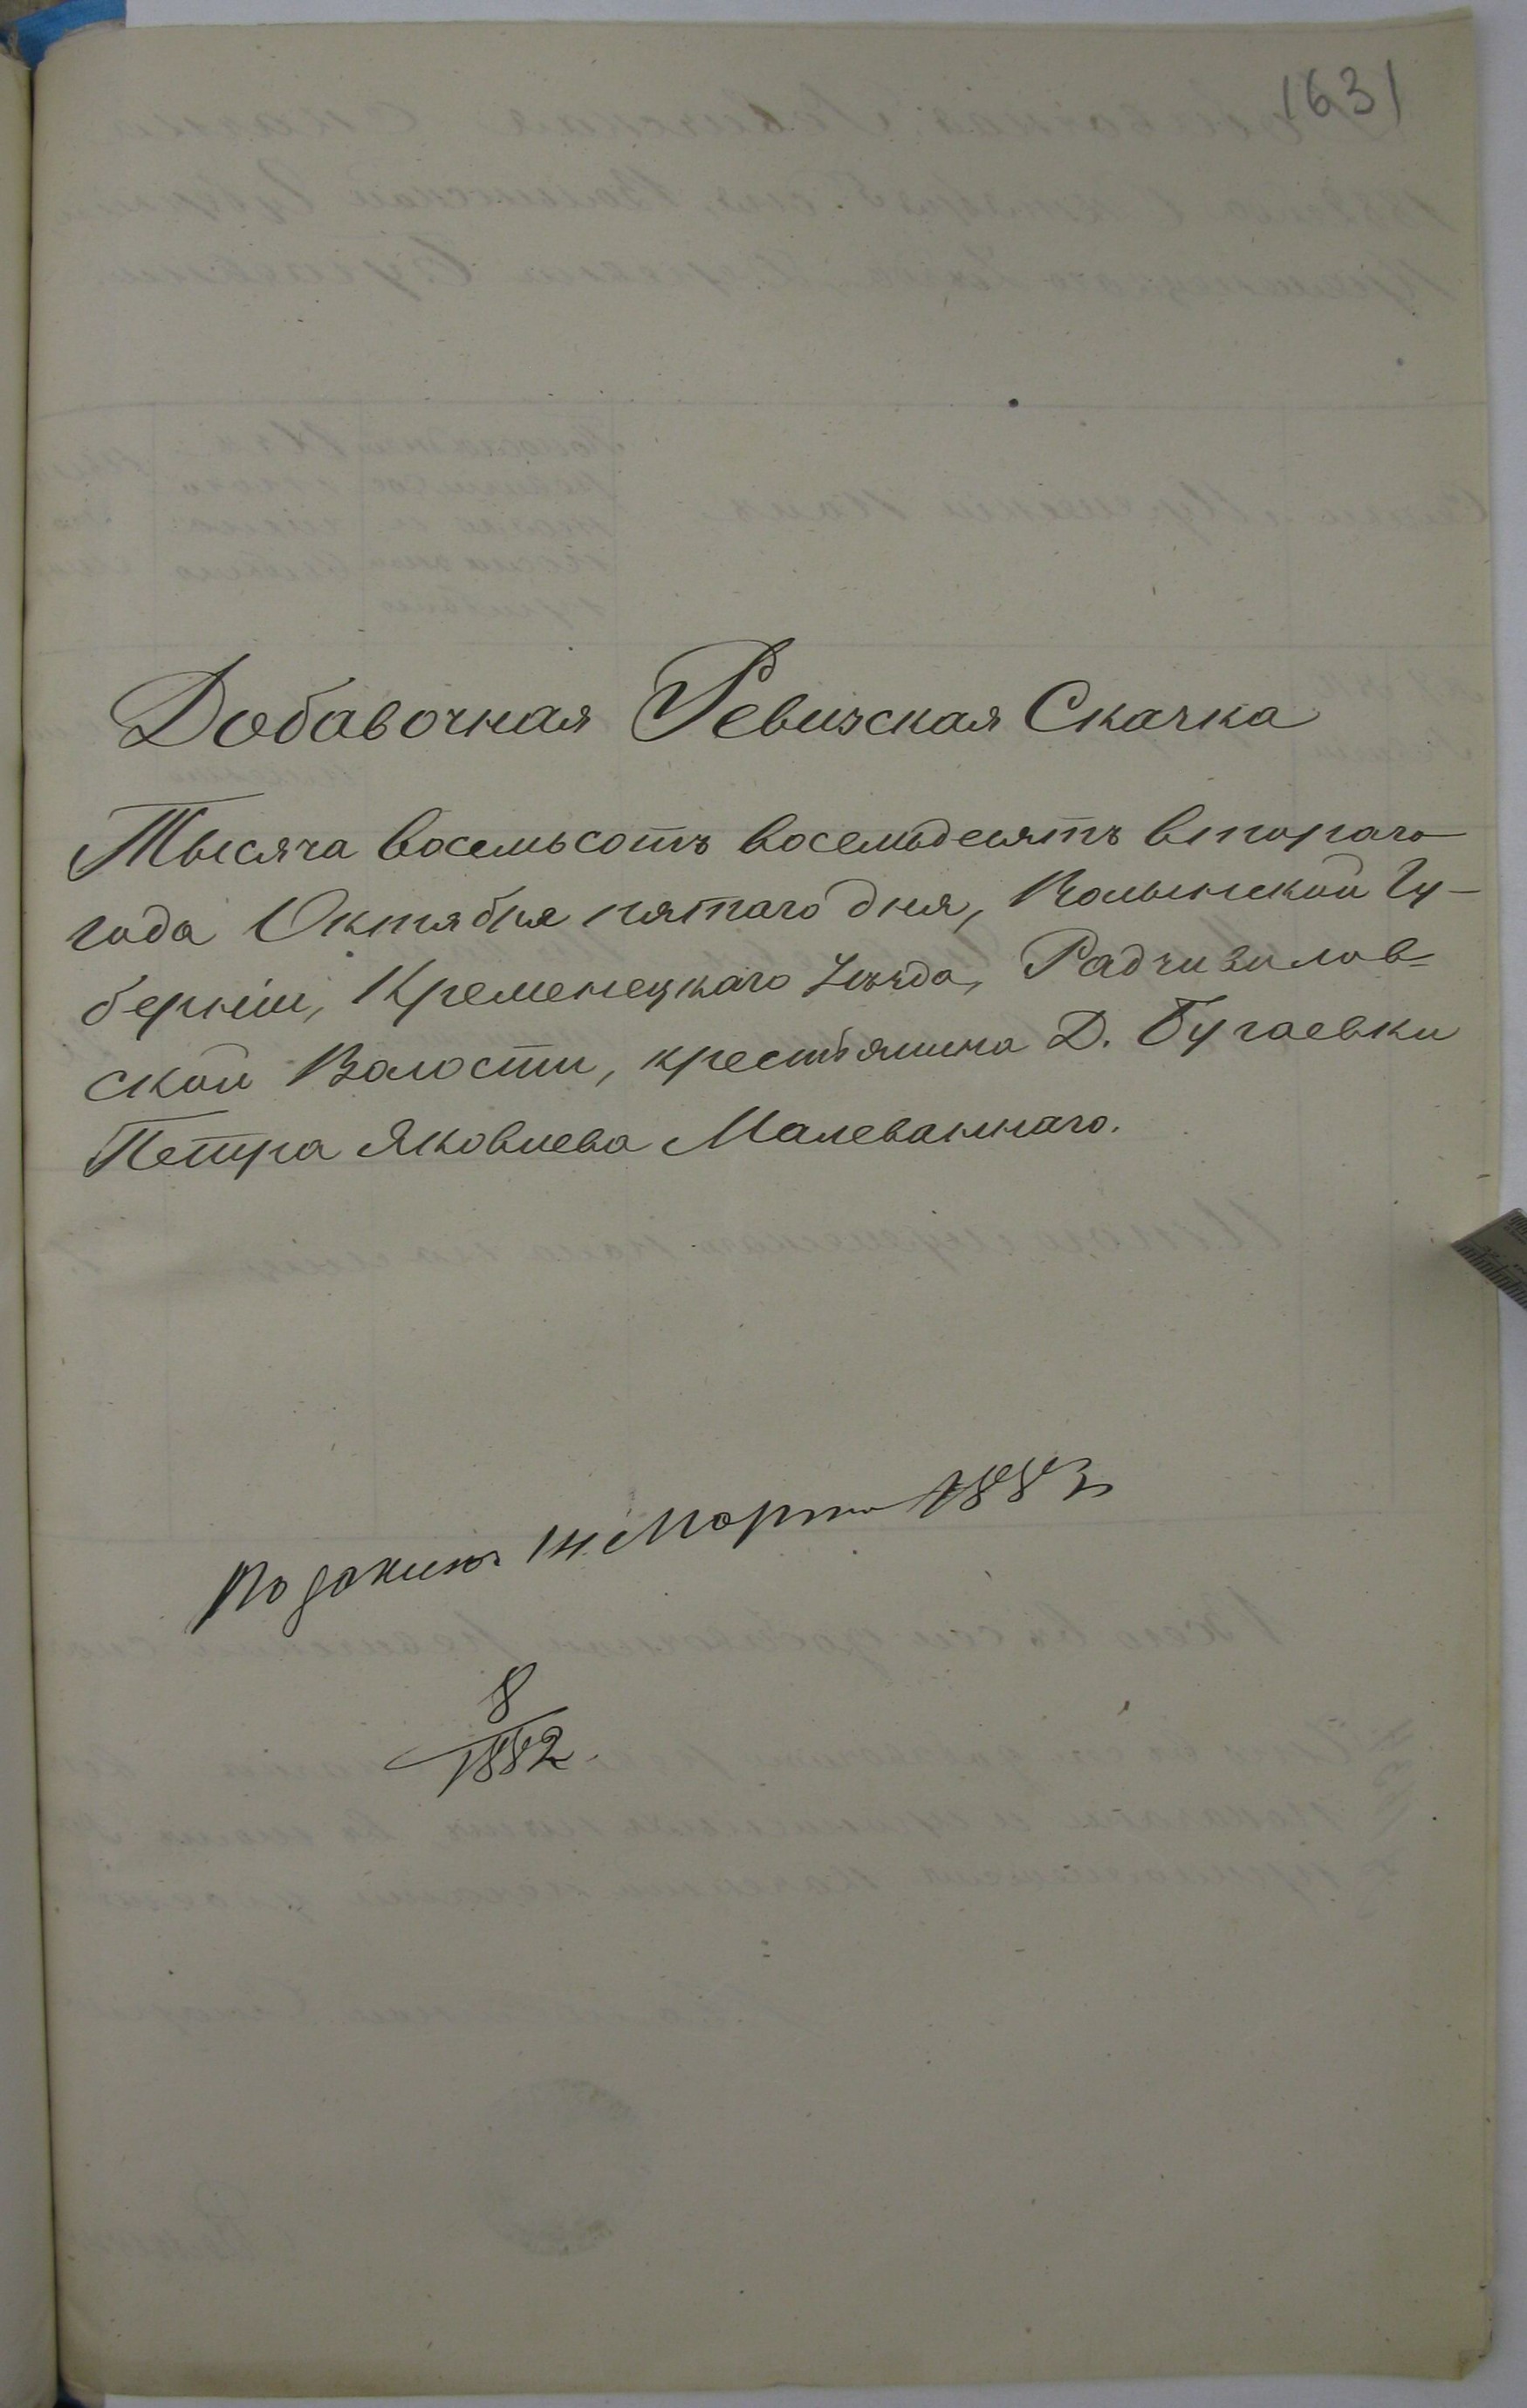 1631
Добавочная Ревизская Сказка
Тысяча восемьсотъ восемьдесятъ втораго
года Октября пятаго дня, Волынской Гу-
берніи, Кременецкаго Уѣзда, Радзивилов-
ской Волости, крестьянина Д. Бугаевки
Петра Яковлева Малеваннаго.
14 Марта 1883
8
1882.